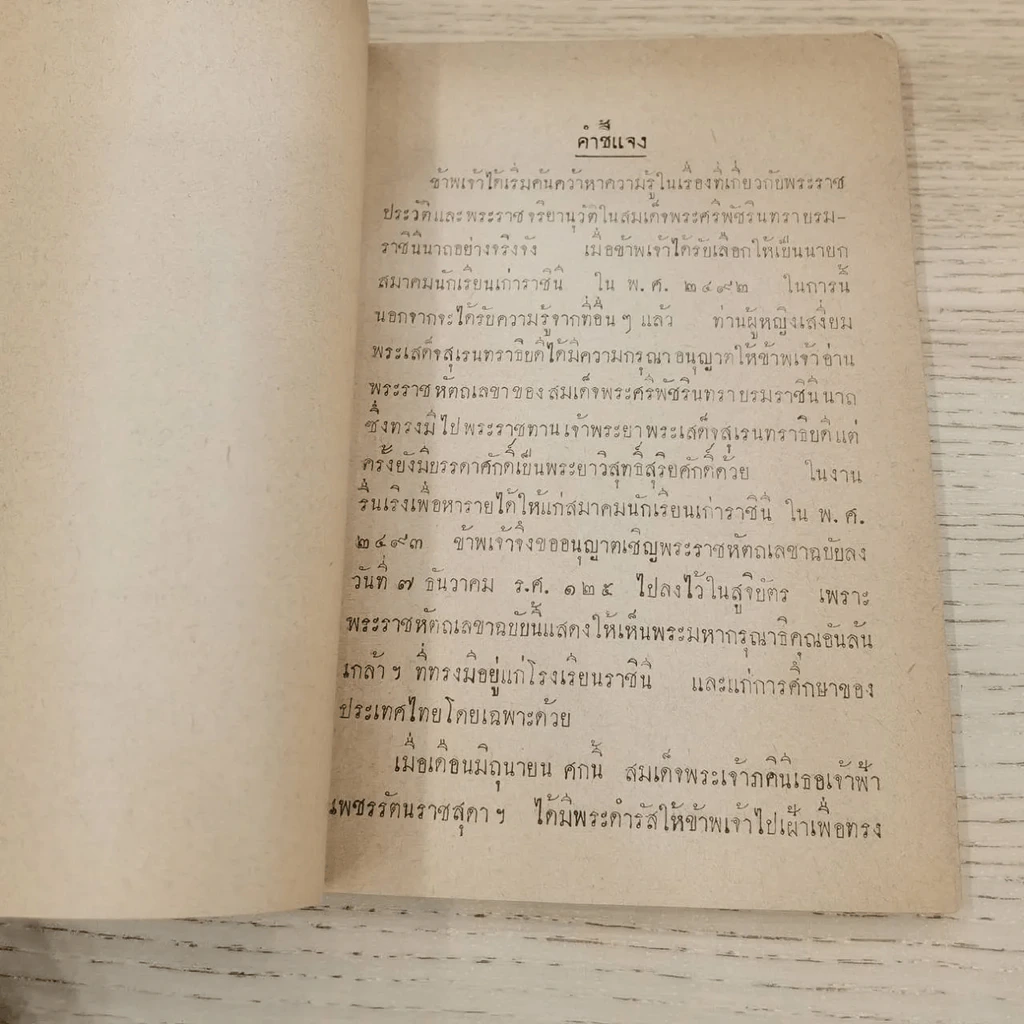 คำชี้แจง
ข้าพเจ้าได้เริ่มค้นคว้าหาความรู้ในเรื่องที่เกี่ยวกับพระราช
ประวัติและพระราชจริยานุวัติในสมเด็จพระศรีพัชรินทราบรม-
ราชินีนาถอย่างจริงจัง เมื่อข้าพเจ้าได้รับเลือกให้เป็นนายก
สมาคมนักเรียนเก่าราชินี ใน พ.ศ. ๒๔๙๒ ในการนี้
นอกจากจะได้รับความรู้จากที่อื่น ๆ แล้ว ท่านผู้หญิงเสงี่ยม
พระเสด็จสุเรนทราธิบดีได้มีความกรุณาอนุญาตให้ข้าพเจ้าอ่าน
พระราชหัตถเลขาของสมเด็จพระศรีพัชรินทราบรมราชินีนาถ
ซึ่งทรงมีไปพระราชทานเจ้าพระยาพระเสด็จสุเรนทราธิบดีแต่
ครั้งยังมีบรรดาศักดิ์เป็นพระยาวิสุทธิ์สุริยศักดิ์ด้วย ในงาน
รื่นเริงเพื่อหารายได้ให้แก่สมาคมนักเรียนเก่าราชินี ใน พ.ศ.
๒๔๙๓ ข้าพเจ้าจึงขออนุญาตเชิญพระราชหัตถเลขาฉบับลง
วันที่ ๗ ธันวาคม ร.ศ. ๑๒๕ ไปลงไว้ในสูจิบัตร เพราะ
พระราชหัตถเลขาฉบับนี้แสดงให้เห็นพระมหากรุณาธิคุณอันล้น
เกล้าฯ ที่ทรงมีอยู่แก่โรงเรียนราชินี และแก่การศึกษาของ
ประเทศไทยโดยเฉพาะด้วย
เมื่อเดือนมิถุนายน ศกนี้ สมเด็จพระเจ้าภคินีเธอเจ้าฟ้า
เพชรรัตนราชสุดาฯ ได้มีพระดำรัสให้ข้าพเจ้าไปเฝ้าเพื่อทรง